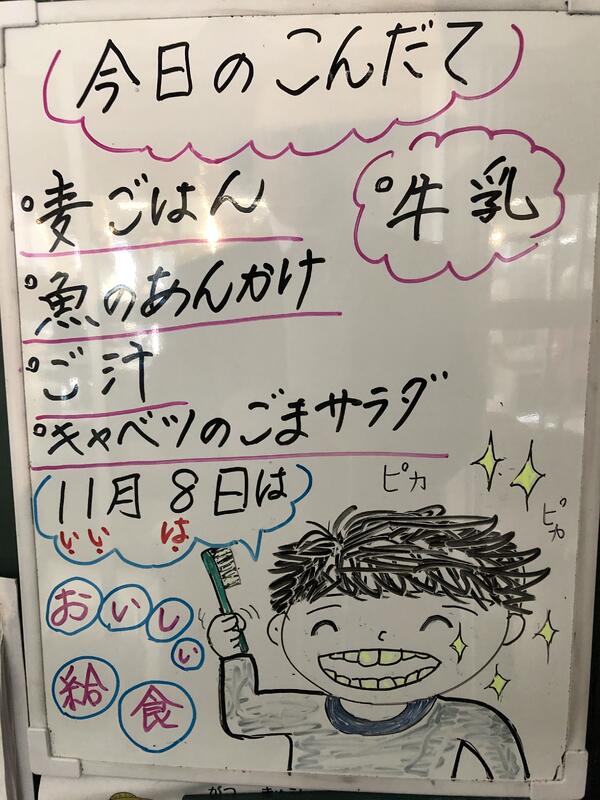 今日のこんだて
麦ごはん
牛乳
魚のあんかけ
ご汁
キャベツのごまサラダ
11月8日は
いい は
ピカ
ピカ
おいしい
給食